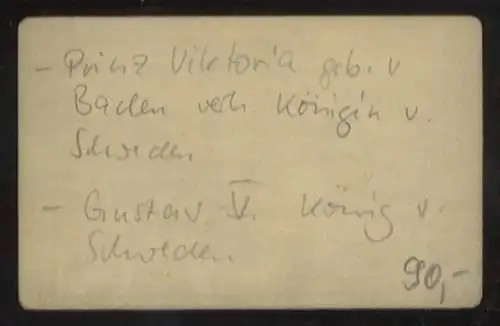 - Prinz Viktoria geb. v
Baden verh Königin v.
Schweden
- Gustav V. König v.
Schweden
90,-